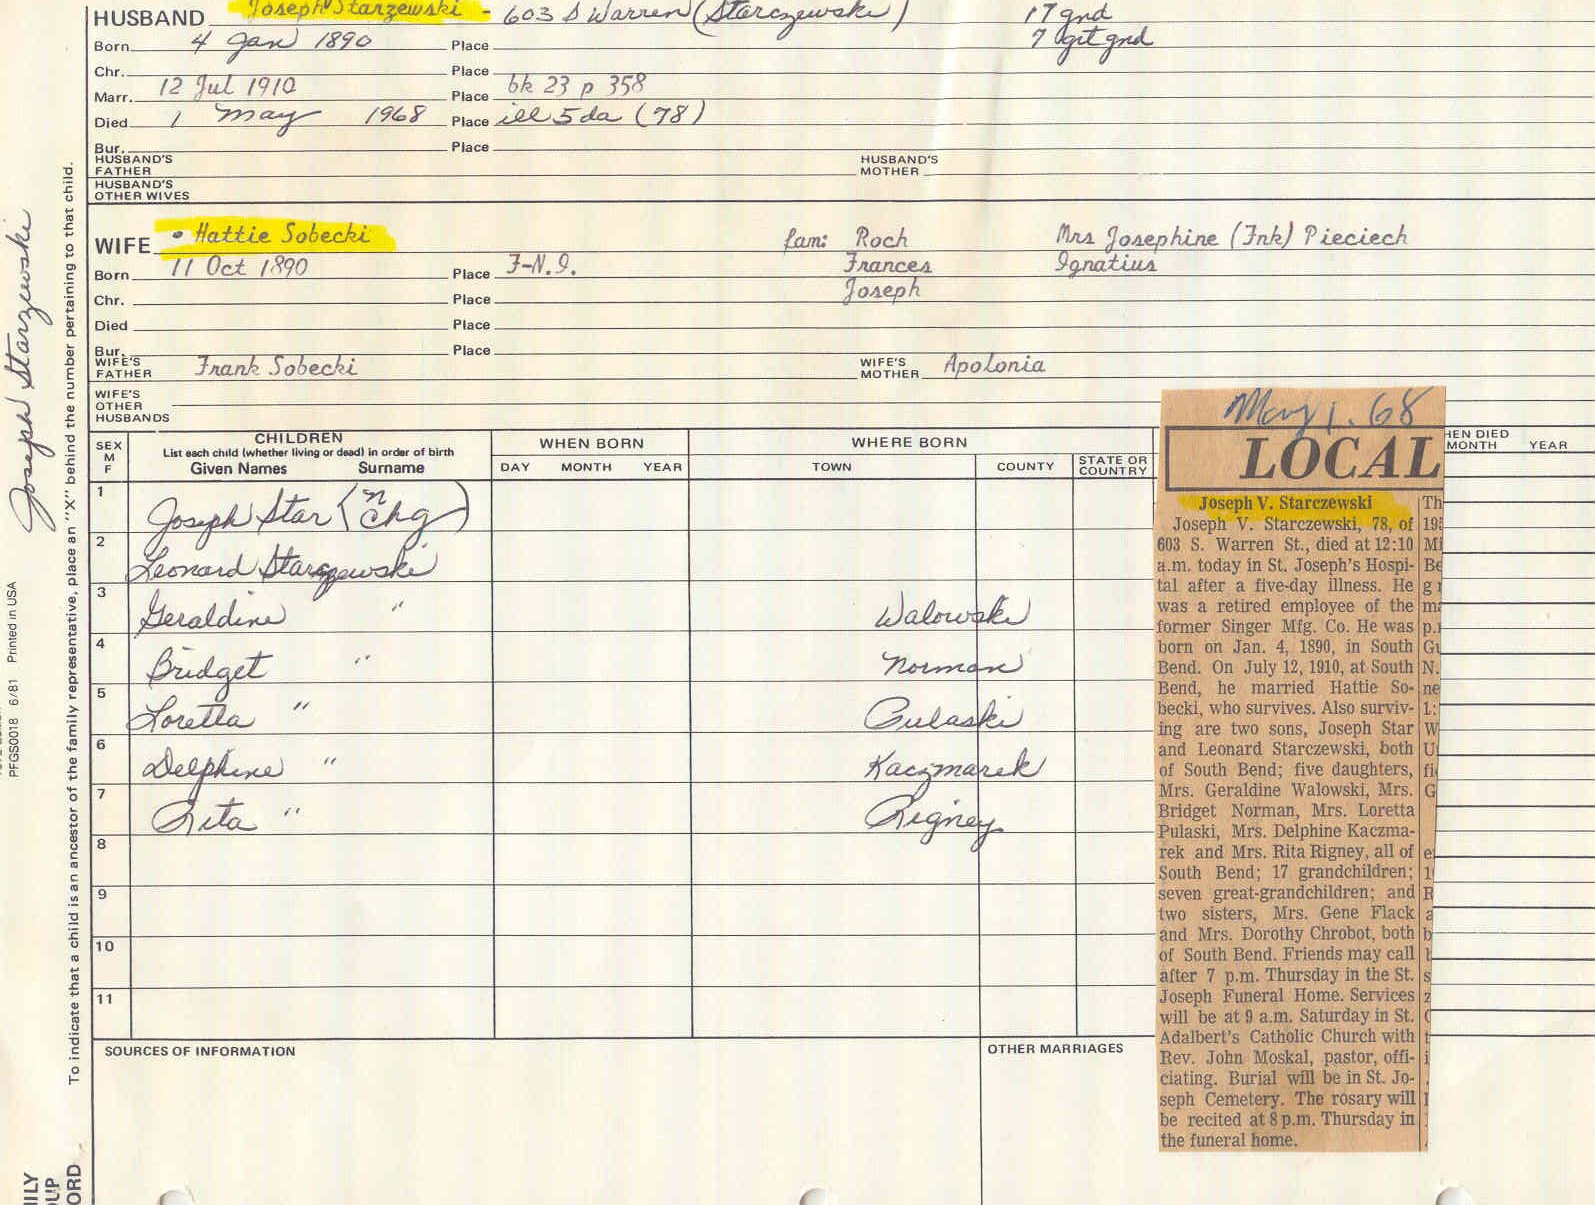 HUSBAND Joseph Starzewski - 603 S Warren (Starczewski) 17 gnd
Born 4 Jan 1890 Place 7 grt gnd
Chr. Place
Marr. 12 Jul 1910 Place bk 23 p 358
Died 1 May 1968 Place ill 5 da (78)
Bur. Place
HUSBAND'S FATHER HUSBAND'S MOTHER
HUSBAND'S OTHER WIVES
WIFE • Hattie Sobecki fam: Roch Mrs Josephine (Ink) Pieciech
Born 11 Oct 1890 Place F-N.I. Frances Ignatius
Chr. Place Joseph
Died Place
Bur. Place
WIFE'S FATHER Frank Sobecki WIFE'S MOTHER Apolonia
WIFE'S
OTHER
HUSBANDS
SEX
M
F
CHILDREN
List each child (whether living or dead) in order of birth
Given Names Surname
WHEN BORN
DAY MONTH YEAR
WHERE BORN
TOWN COUNTY STATE OR COUNTRY
HEN DIED
MONTH YEAR
1 Joseph Star (n chg)
2 Leonard Starzewski
3 Geraldine " Walowski
4 Bridget " Norman
5 Loretta " Pulaski
6 Delphine " Kaczmarek
7 Rita " Rigney
8
9
10
11
SOURCES OF INFORMATION OTHER MARRIAGES
May 1. 68
LOCAL
Joseph V. Starczewski
Joseph V. Starczewski, 78, of
603 S. Warren St., died at 12:10
a.m. today in St. Joseph's Hospi-
tal after a five-day illness. He
was a retired employee of the
former Singer Mfg. Co. He was
born on Jan. 4, 1890, in South
Bend. On July 12, 1910, at South
Bend, he married Hattie So-
becki, who survives. Also surviv-
ing are two sons, Joseph Star
and Leonard Starczewski, both
of South Bend; five daughters,
Mrs. Geraldine Walowski, Mrs.
Bridget Norman, Mrs. Loretta
Pulaski, Mrs. Delphine Kaczma-
rek and Mrs. Rita Rigney, all of
South Bend; 17 grandchildren;
seven great-grandchildren; and
two sisters, Mrs. Gene Flack
and Mrs. Dorothy Chrobot, both
of South Bend. Friends may call
after 7 p.m. Thursday in the St.
Joseph Funeral Home. Services
will be at 9 a.m. Saturday in St.
Adalbert's Catholic Church with
Rev. John Moskal, pastor, offi-
ciating. Burial will be in St. Jo-
seph Cemetery. The rosary will
be recited at 8 p.m. Thursday in
the funeral home.
Joseph Starzewski
To indicate that a child is an ancestor of the family representative, place an "X" behind the number pertaining to that child.
PFGS0018 6/81 Printed in USA